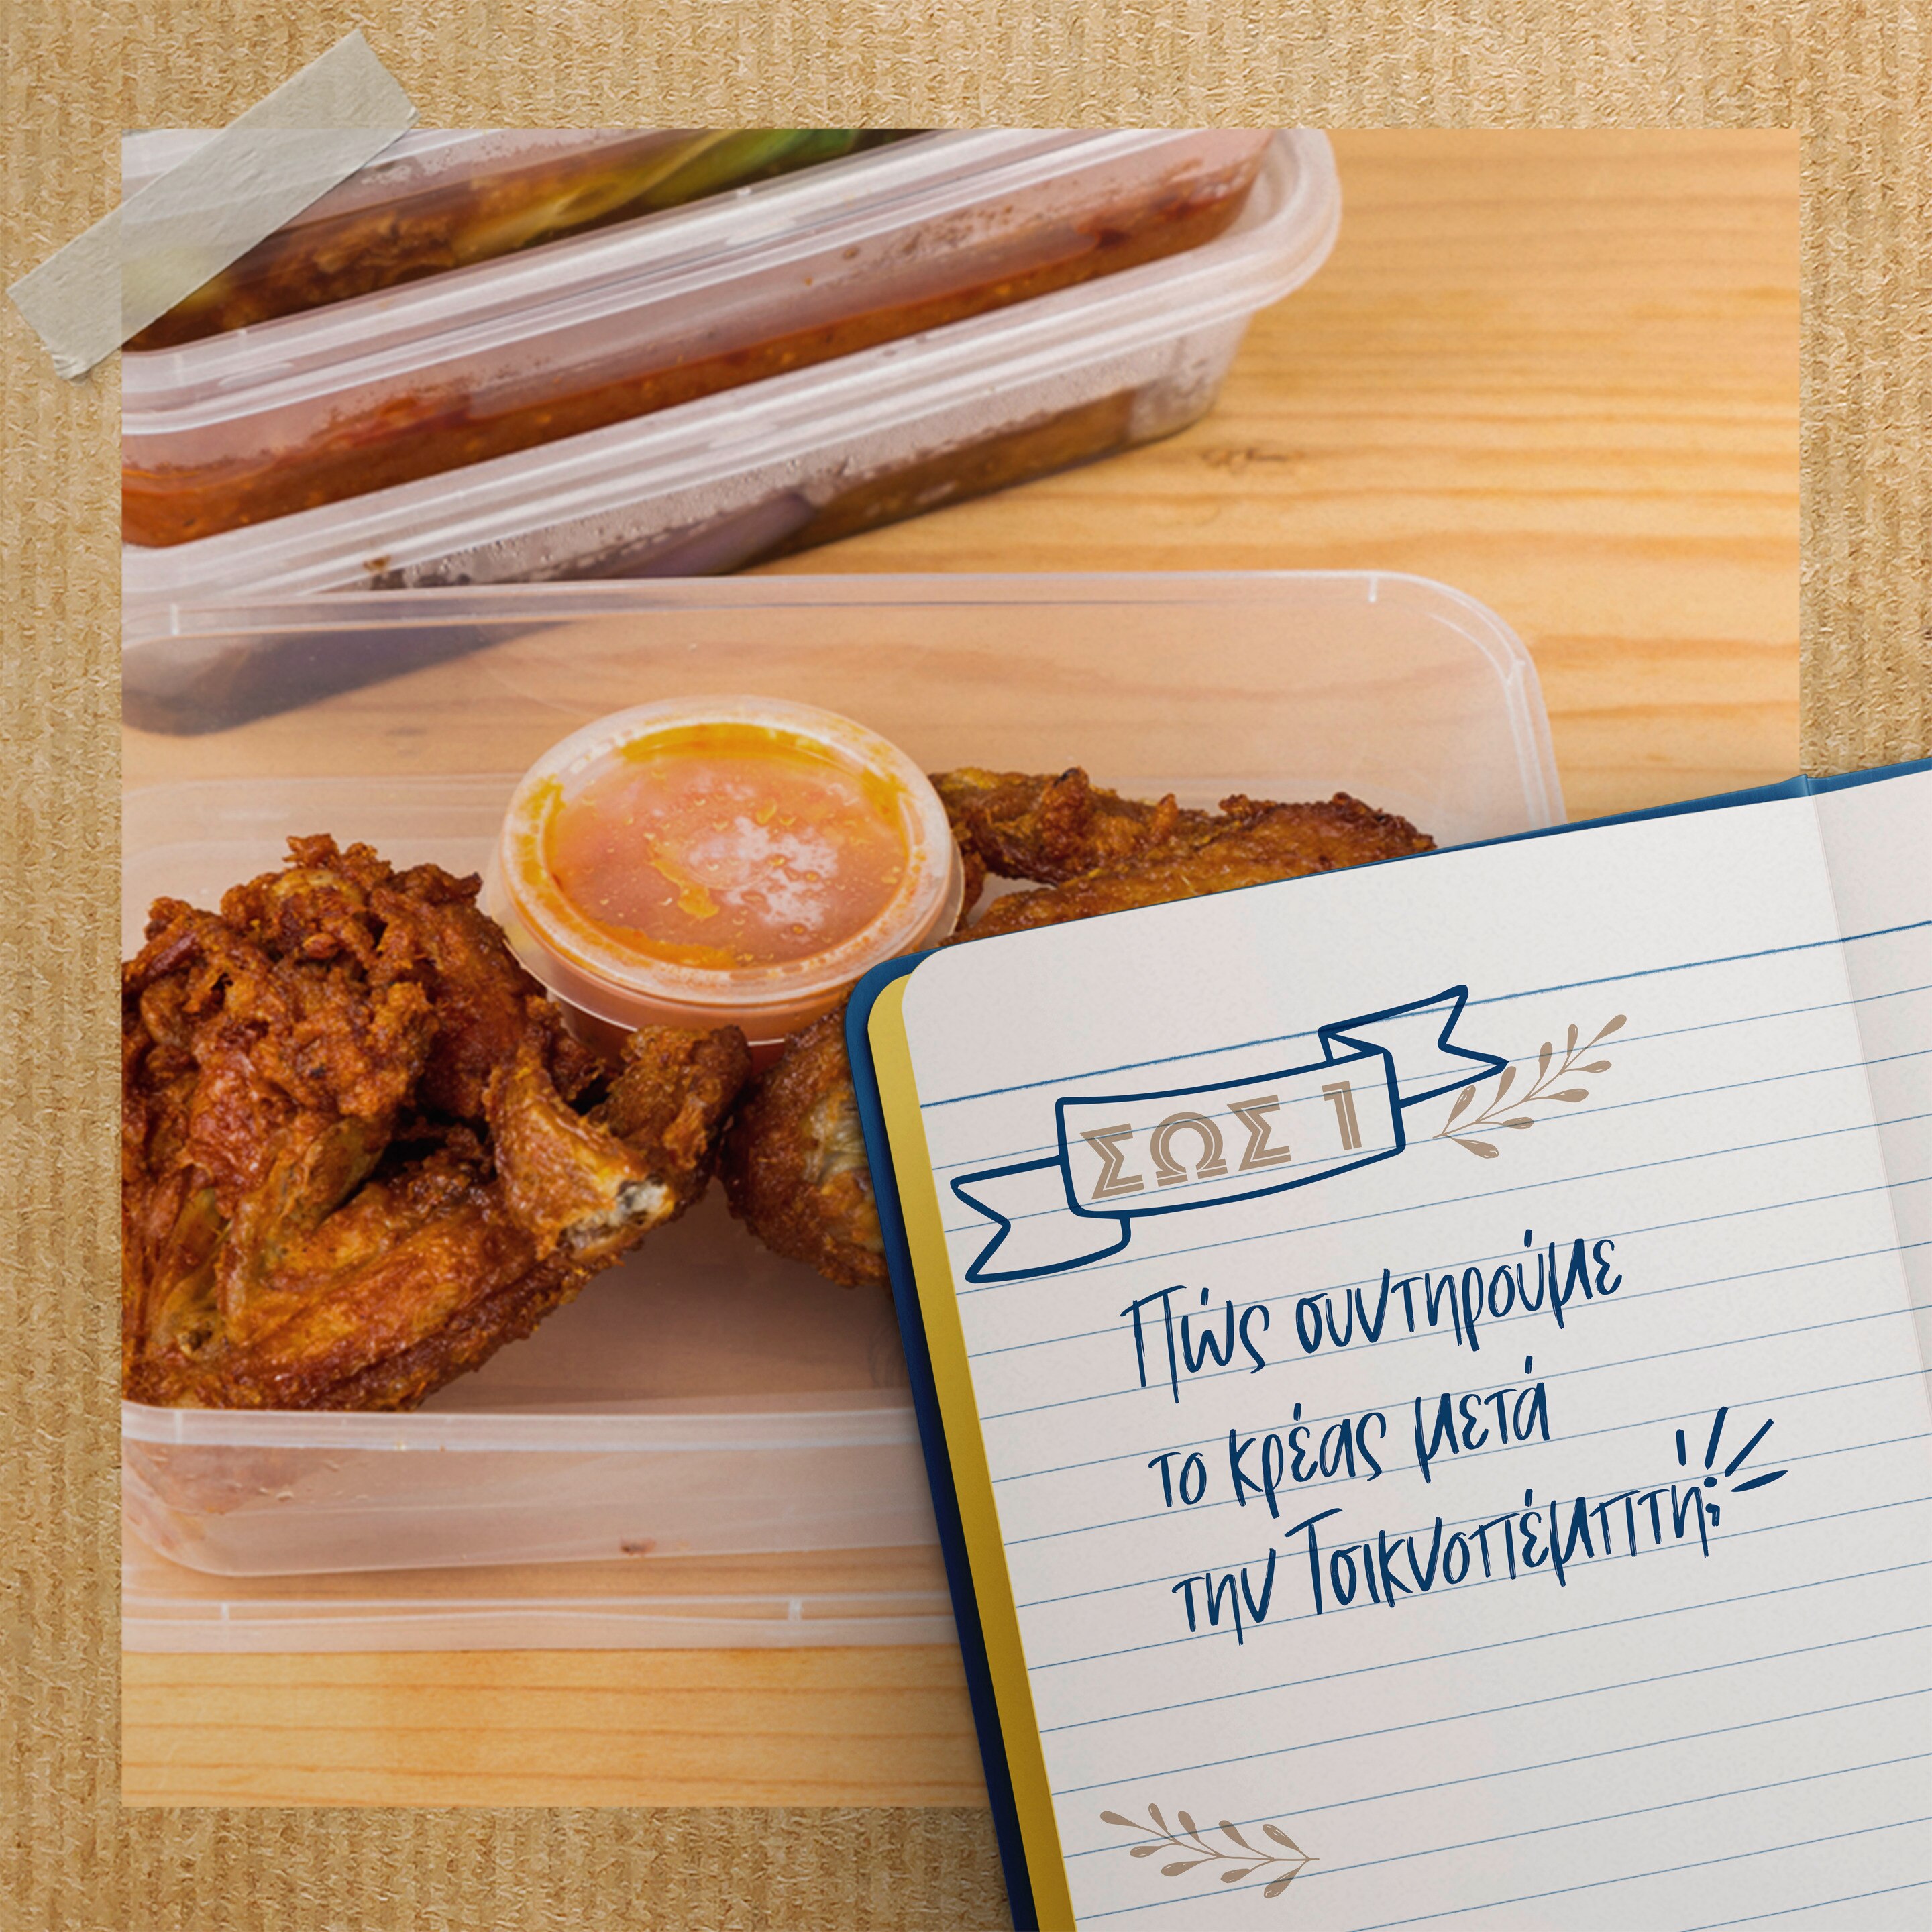 ΣΩΣ 1
Πώς συντηρούμε
το κρέας μετά
την Τσικνοπέμπτη;